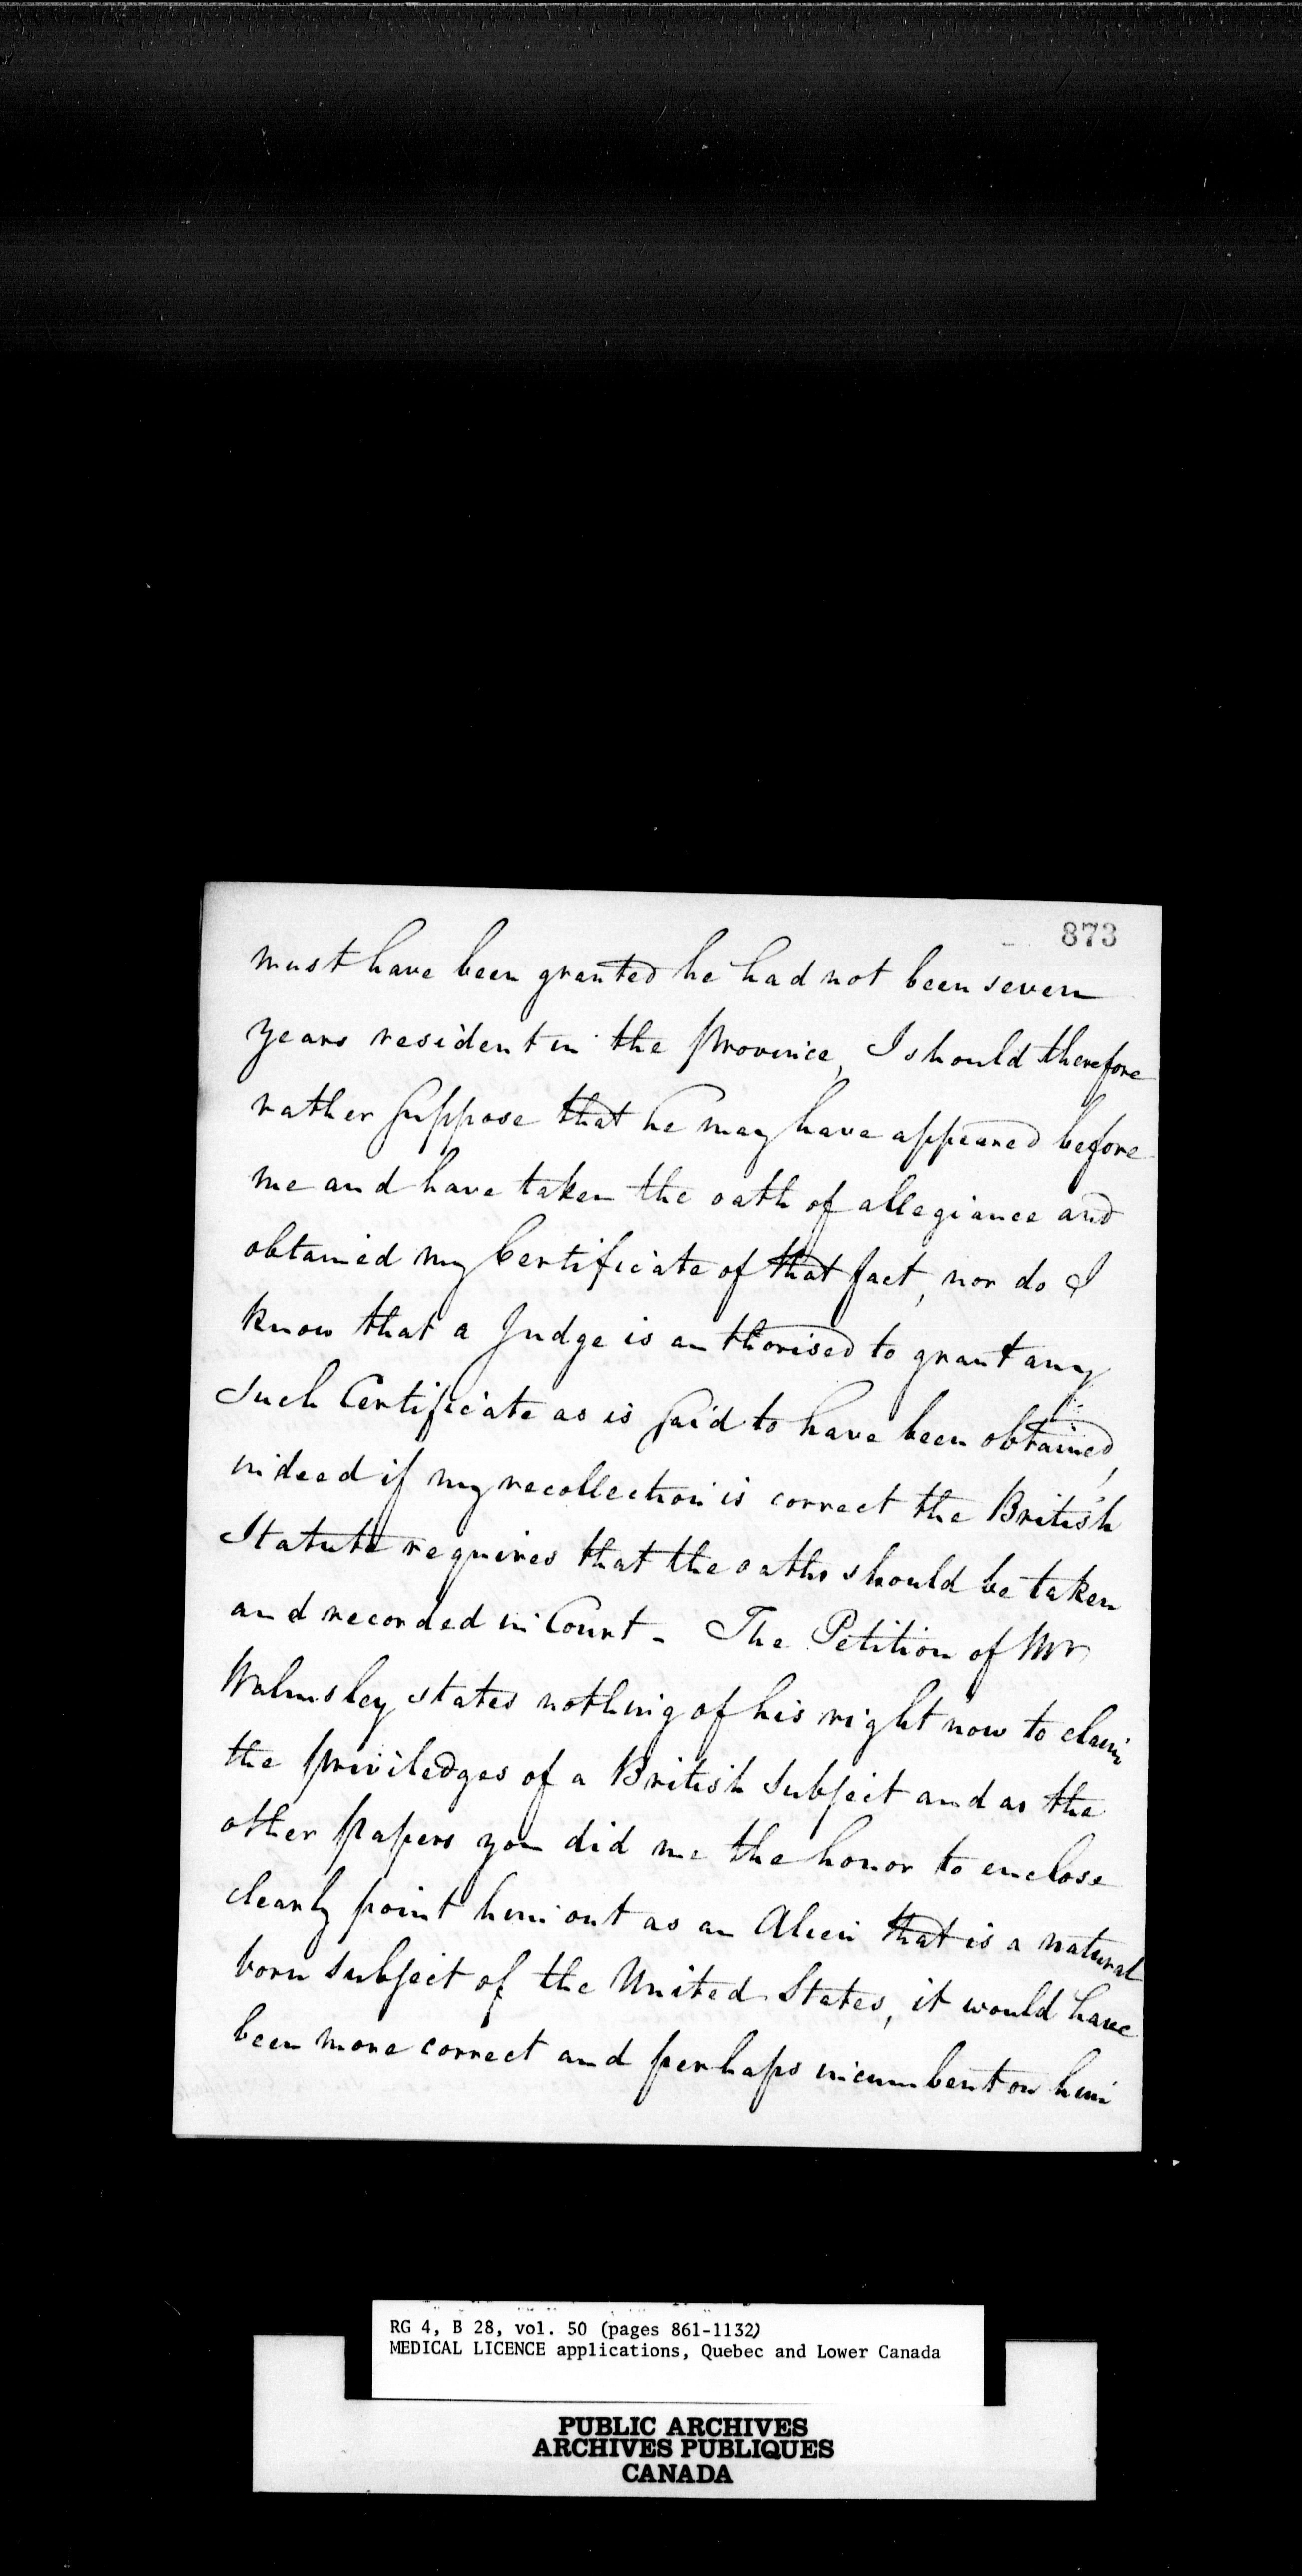 873
must have been granted he had not been seven
years resident in the Province, I should therefore
rather suppose that he may have appeared before
me and have taken the oath of allegiance and
obtained my Certificate of that fact, nor do I
know that a Judge is authorised to grant any
such Certificate as is said to have been obtained,
indeed if my recollection is correct the British
Statute requires that the oaths should be taken
and recorded in Court - The Petition of Mr
Walmsley states nothing of his right now to claim
the priviledges of a British Subject and as the
other papers you did me the honor to enclose
clearly point him out as an Alien that is a natural
born subject of the United States, it would have
been more correct and perhaps incumbent on him
RG 4, B 28, vol. 50 (pages 861-1132)
MEDICAL LICENCE applications, Quebec and Lower Canada
PUBLIC ARCHIVES
ARCHIVES PUBLIQUES
CANADA